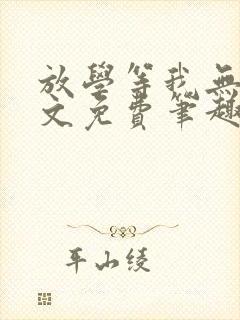 放學等我無
文免費筆趣
平山綾